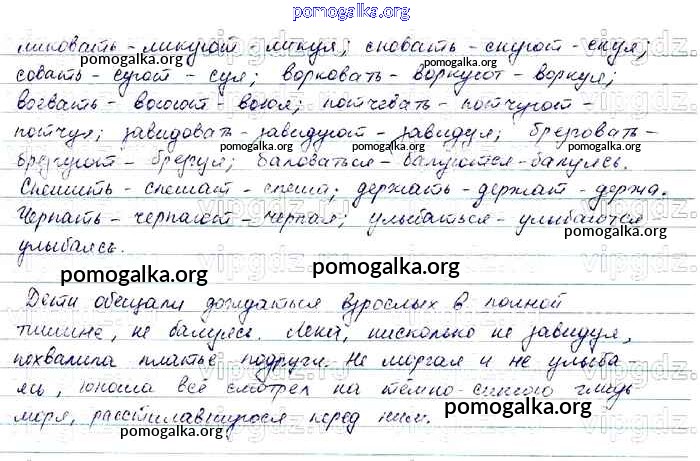 pomogalka.org
ликовать - ликуют - ликуя; сновать - снуют - снуя;
совать - суют - суя; ворковать - воркуют - воркуя;
pomogalka.org pomogalka.org
воевать - воюют - воюя; потчевать - потчуют -
потчуя; завидовать - завидуют - завидуя; брезговать -
pomogalka.org pomogalka.org
брезгуют - брезгуя; баловаться - балуются - балуясь.
Спешить - спешат - спеша; держать - держат - держа.
pomogalka.org pomogalka.org
Черпать - черпают - черпая; улыбаться - улыбаются
улыбаясь.
pomogalka.org pomogalka.org
Дети обещали дождаться взрослых в полной
тишине, не балуясь. Лена, нисколько не завидуя,
похвалила платье подруги. Не моргая и не улыба-
ясь, юноша всё смотрел на тёмно-синюю гладь
моря, расстилавшуюся перед ним. pomogalka.org
pomogalka.org